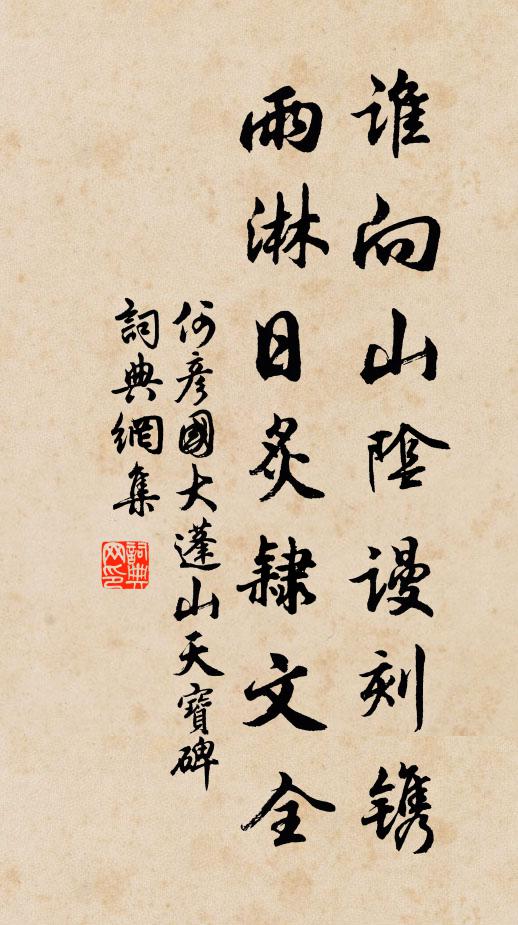 誰向山陰謾刻鐫
雨淋日炙隸文全
何彥國大蓬山天寶碑
詞典網集
詞典网印